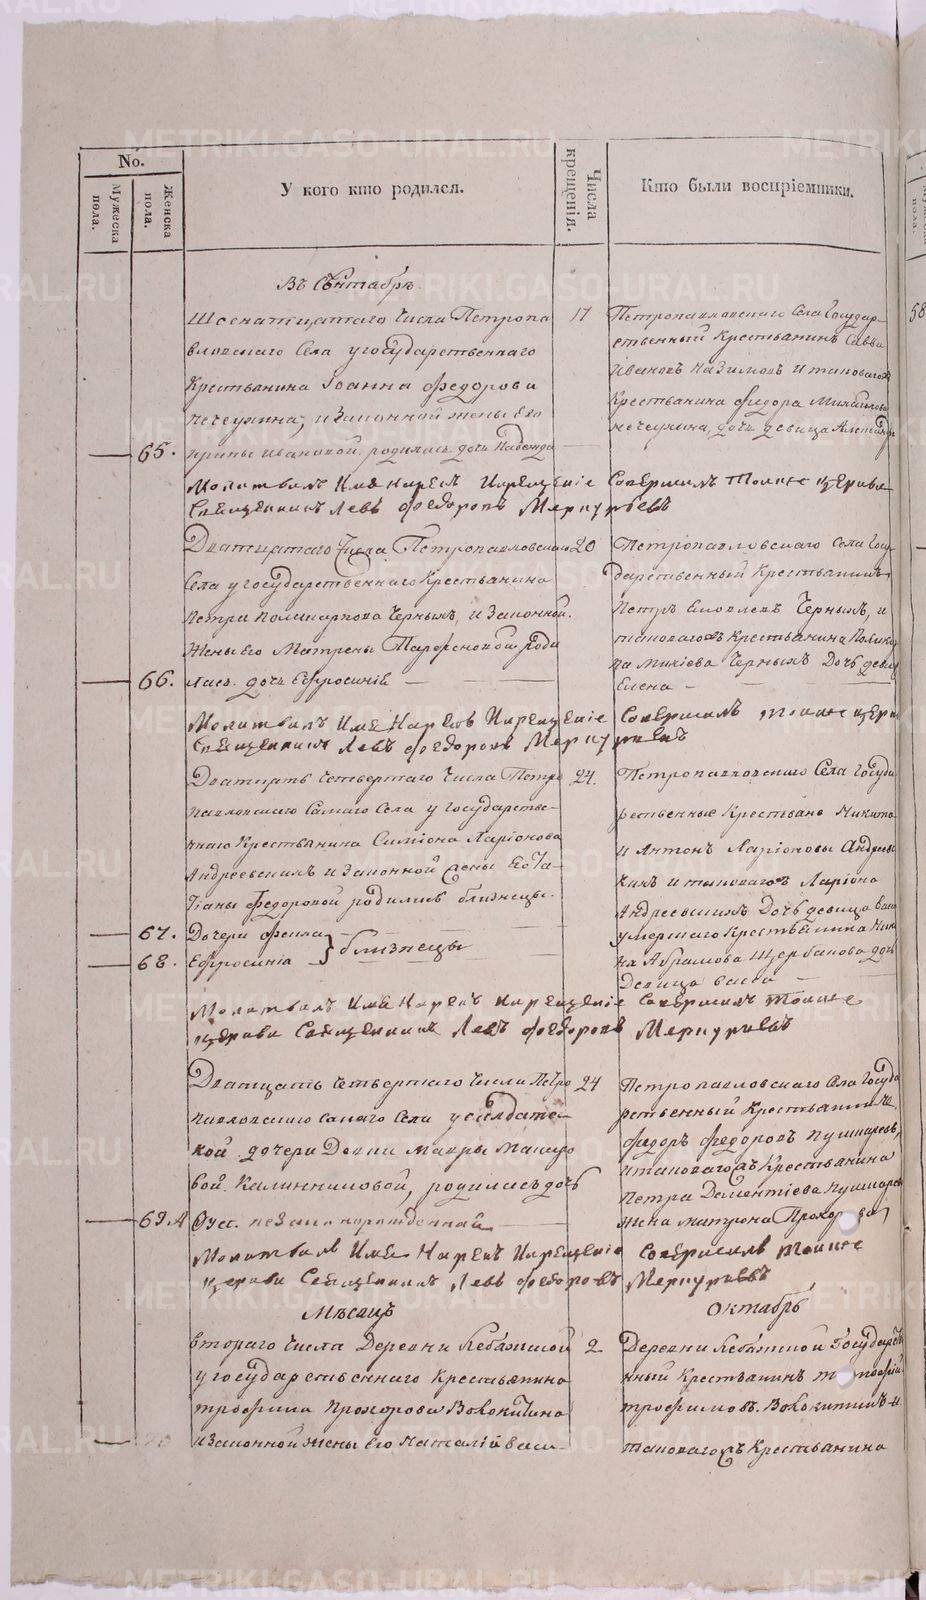 No.
Мужеска пола.
Женска пола.
У кого кто родился.
Числа крещенія.
Кто были воспріемники.
Въ Сентябрѣ.
числа Петропа
вловскаго Села у государственнаго
Крестьянина Іоанна Федорова
Нечеухина, и законной жены его
65. Ирины Ивановой родилась дочь Надежда
17
Петропавловскаго Села Государ-
ственный Крестьянинъ Савва
Ивановъ Назимовъ и таковагожъ
Крестьянина Федора Михайлова
Нечеухина, дочь девица
Молитвилъ Имя Нарекъ Икрещеніе Совершилъ Тойже церкви
Священникъ Левъ Федоровъ Меркурьевъ
Дватцатаго Числа Петропавловскаго
Села у государственнаго Крестьянина
Петра Поликарпова Черныхъ, и Законной
Жены Его Матрены Парфеновой роди
66. лась дочь Ефросинія
20
Петропавловскаго Села Госу
дарственный Крестьянинъ
Петръ Яковлевъ Черныхъ, и
таковагожъ Крестьянина
Черныхъ Дочь девица
Елена
Молитвилъ Имя Нарекъ Икрещеніе Совершилъ тойже церк
Священникъ Левъ Федоровъ Меркурьевъ
Дватцать четвертаго Числа Петро
павловскаго Самаго Села у государстве-
ннаго Крестьянина Симіона Ларіонова
Андреевскихъ и Законной Жены Его Та-
тіаны Федоровой родились близнецы.
67. Дочери Фекла
68. Ефросинія } близнецы
24.
Петропавловскаго Села Госуда
рственные Крестьяне Никита
и Антонъ Ларіоновы Андреевс
кихъ и таковагожъ Ларіона
Андреевскихъ Дочь девица Васса
умершаго Крестьянина
на Абрамова Щербакова дочь
Девица Васса
Молитвилъ Имя Нарекъ Икрещеніе Совершилъ Тойже
церкви Священникъ Левъ Федоровъ Меркурьевъ
Дватцать четвертаго Числа Петро
павловскаго самаго Села у солдатс-
кой дочери Девки Мавры Макаро
вой Калинниковой, родилась дочь
69. незаконнорожденная
24
Петропавловскаго Села Госуда
рственный Крестьянинъ
Федоръ Федоровъ Пушкаревъ,
и таковагожъ Крестьянина
Петра Дементіева Пушкарев
Жена Матрона Прохорова
Молитвилъ Имя Нарекъ Икрещеніе Совершилъ Тойже
церкви Священникъ Левъ Федоровъ Меркурьевъ
Мѣсяцъ Октябрь
втораго Числа Деревни Лебяжской
у государственнаго Крестьянина
Трофима Прохорова Волокитина
и законной жены его Наталіи Васи-
2
Деревни Лебяжской Государств
нный Крестьянинъ
Трофимовъ Волокитинъ и
таковагожъ Крестьянина
58
METRIKI.GASO-URAL.RU